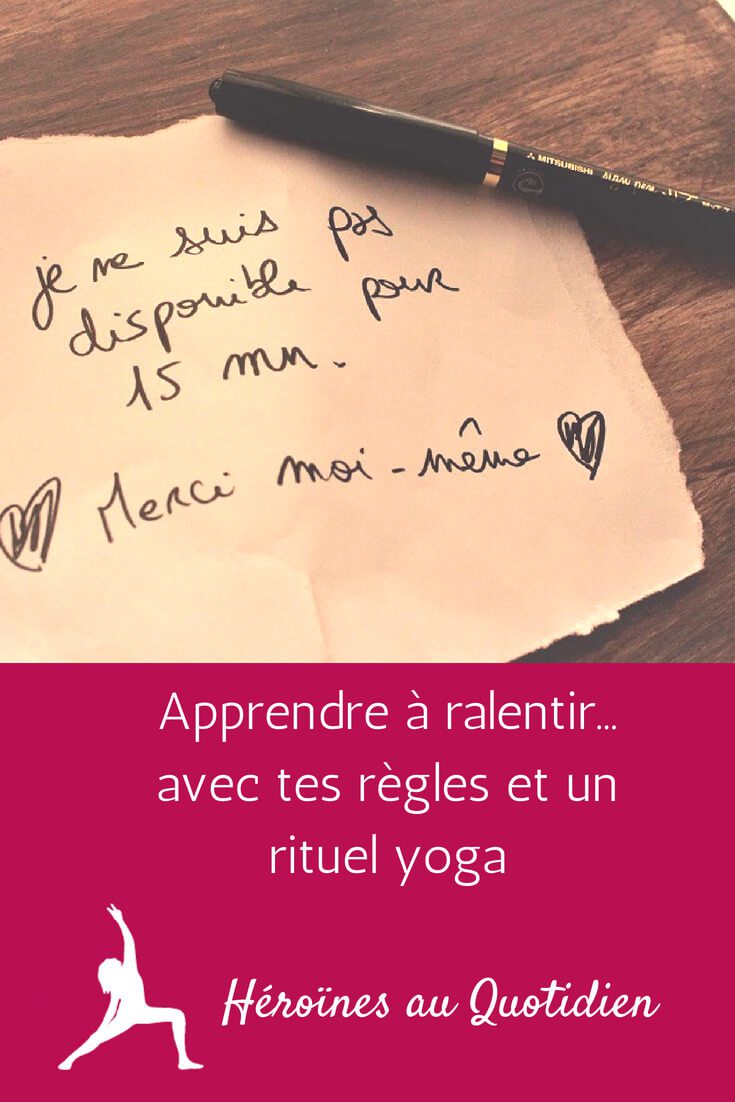 MITSUBISHI
je ne suis pas
disponible pour
15 mn.
Merci moi-même
Apprendre à ralentir...
avec tes règles et un
rituel yoga
Héroïnes au Quotidien